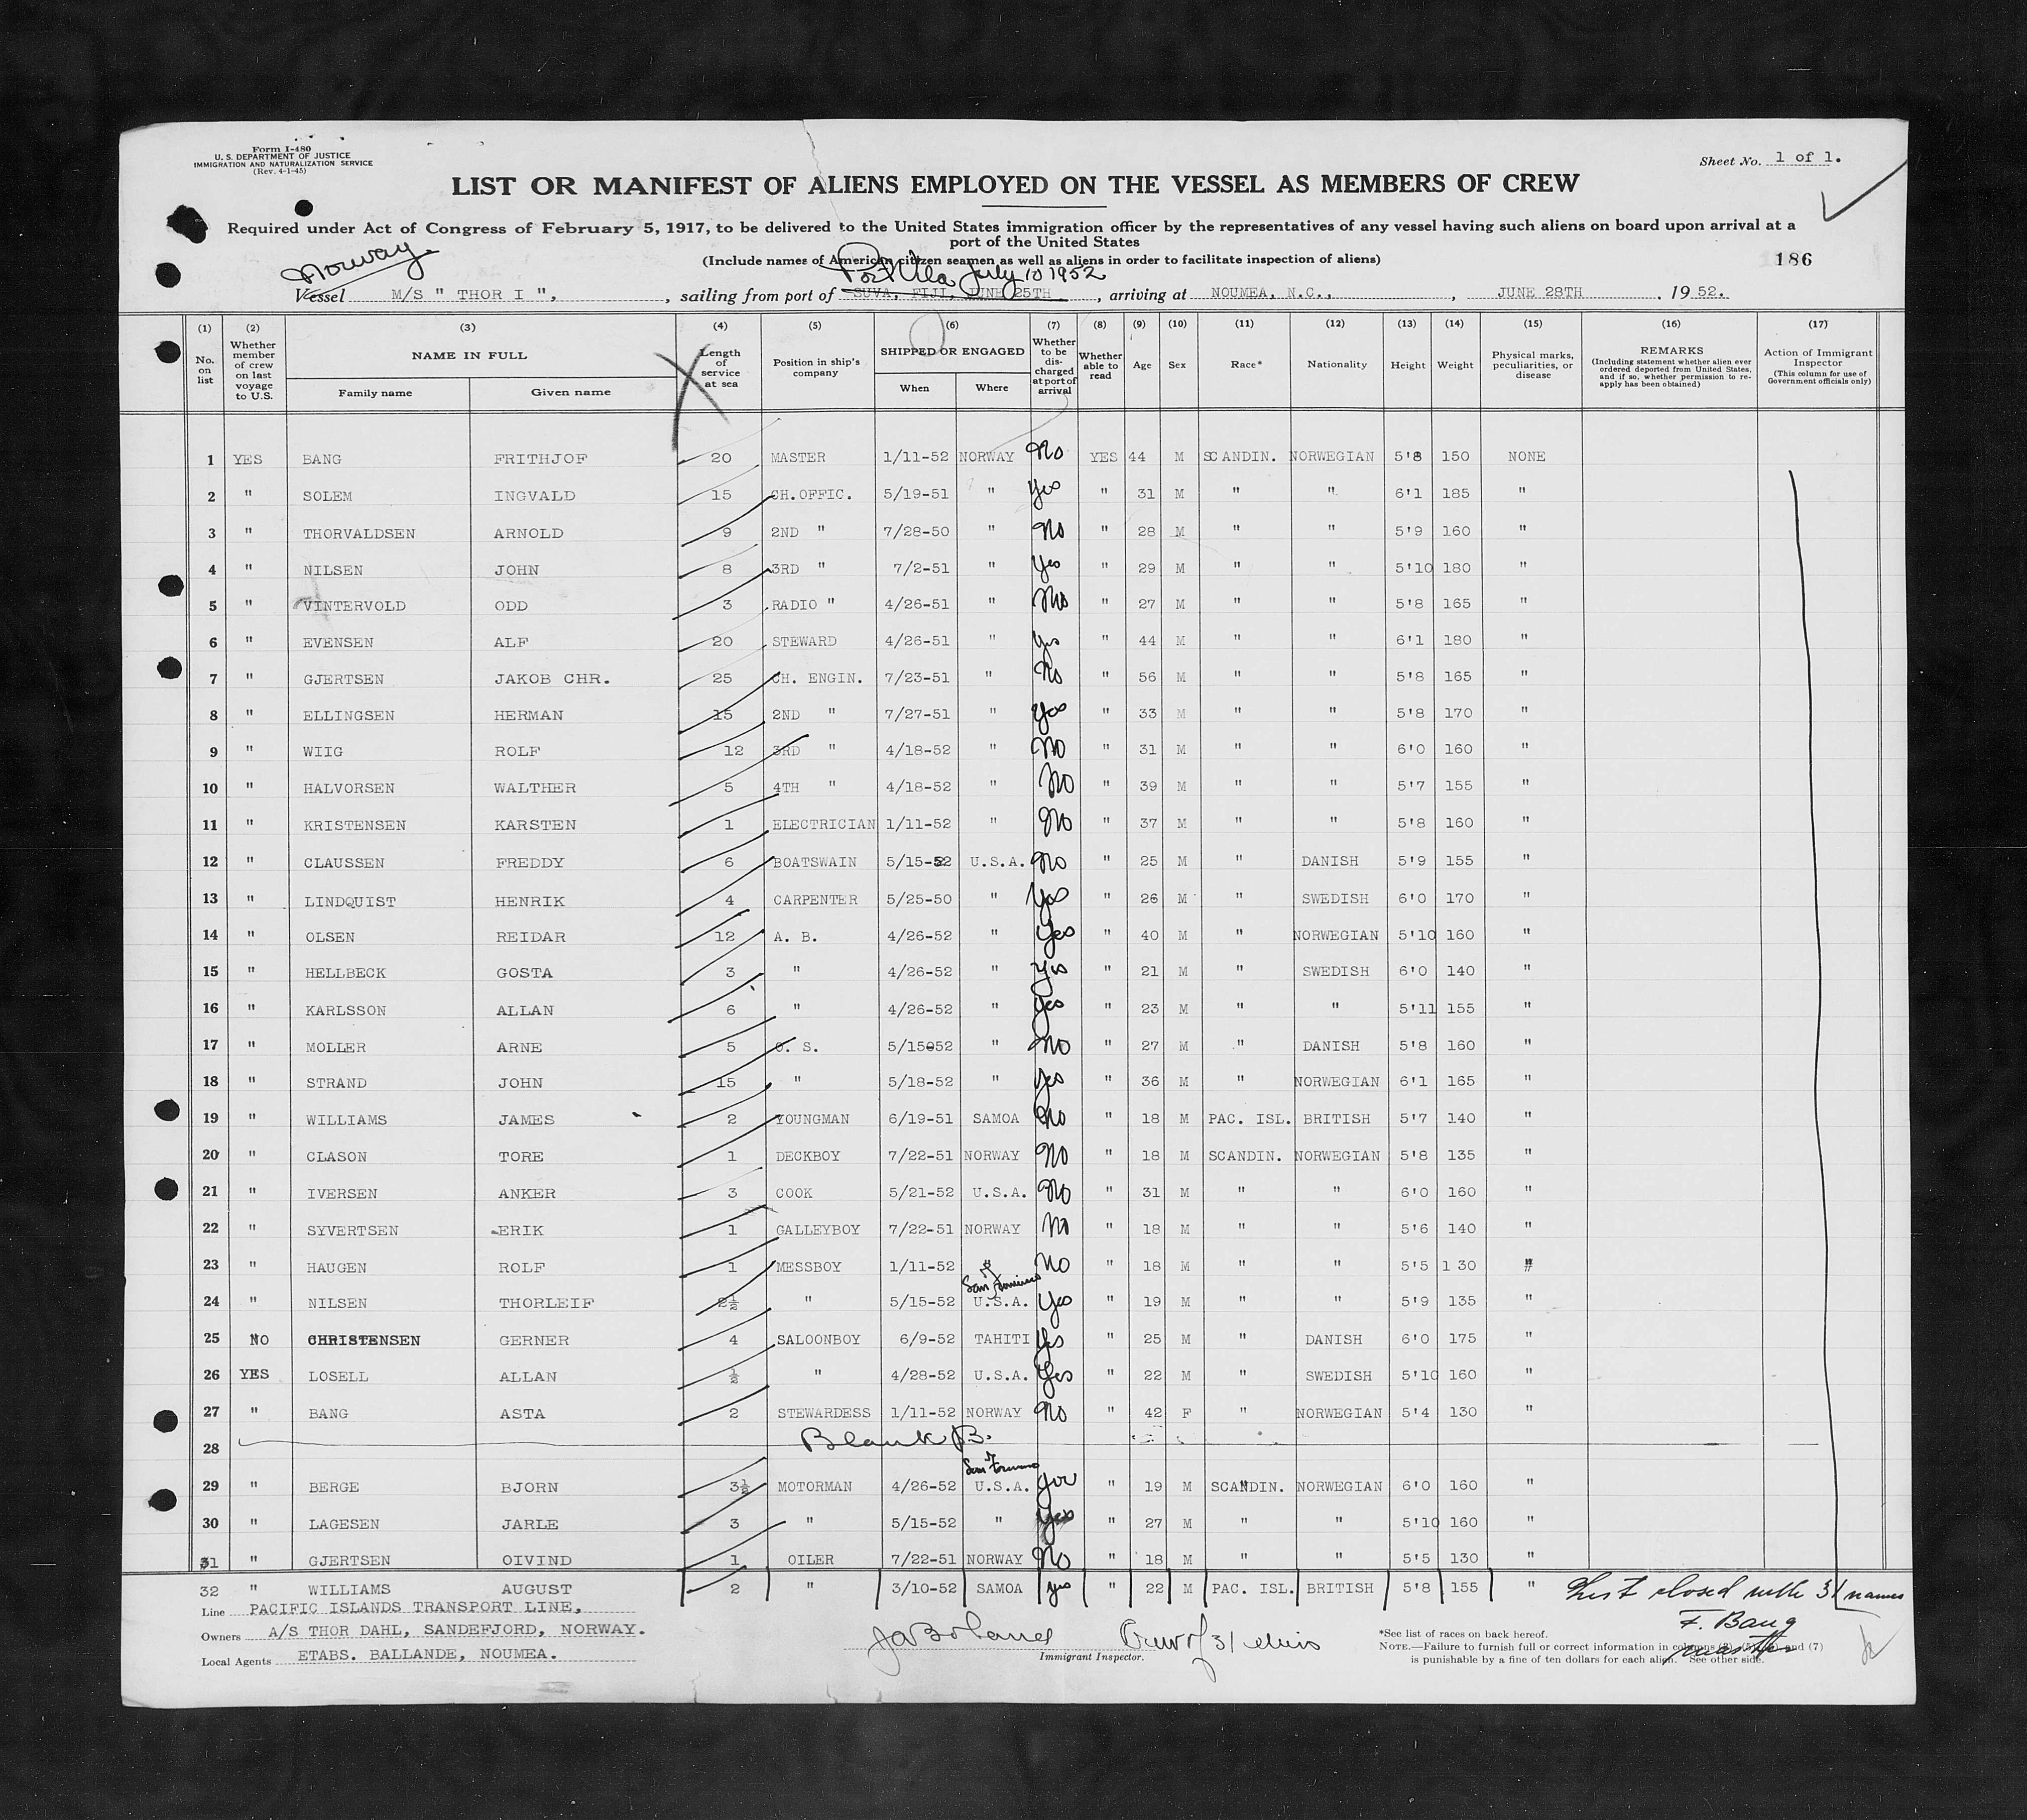 Form I-480
U. S. DEPARTMENT OF JUSTICE
IMMIGRATION AND NATURALIZATION SERVICE
(Rev. 4-1-45)
Sheet No. 1 of 1.
LIST OR MANIFEST OF ALIENS EMPLOYED ON THE VESSEL AS MEMBERS OF CREW
Required under Act of Congress of February 5, 1917, to be delivered to the United States immigration officer by the representatives of any vessel having such aliens on board upon arrival at a
port of the United States
(Include names of American citizen seamen as well as aliens in order to facilitate inspection of aliens)
186
Norway
Port Vila July 10 1952
Vessel M/S " THOR I ", , sailing from port of SUVA, FIJI, JUNE 25TH , arriving at NOUMEA, N.C., , JUNE 28TH . 19 52.
(1) (2) (3) (4) (5) (6) (7) (8) (9) (10) (11) (12) (13) (14) (15) (16) (17)
No. on list
Whether member of crew on last voyage to U.S.
NAME IN FULL
Family name Given name
Length of service at sea
Position in ship's company
SHIPPED OR ENGAGED
When Where
Whether to be discharged at port of arrival
Whether able to read
Age Sex Race* Nationality Height Weight
Physical marks, peculiarities, or disease
REMARKS
(Including statement whether alien ever ordered deported from United States, and if so, whether permission to re-apply has been obtained)
Action of Immigrant Inspector
(This column for use of Government officials only)
1 YES BANG FRITHJOF 20 MASTER 1/11-52 NORWAY No YES 44 M SCANDIN. NORWEGIAN 5'8 150 NONE
2 " SOLEM INGVALD 15 CH.OFFIC. 5/19-51 " Yes " 31 M " " 6'1 185 "
3 " THORVALDSEN ARNOLD 9 2ND " 7/28-50 " No " 28 M " " 5'9 160 "
4 " NILSEN JOHN 8 3RD " 7/2-51 " Yes " 29 M " " 5'10 180 "
5 " VINTERVOLD ODD 3 RADIO " 4/26-51 " No " 27 M " " 5'8 165 "
6 " EVENSEN ALF 20 STEWARD 4/26-51 " Yes " 44 M " " 6'1 180 "
7 " GJERTSEN JAKOB CHR. 25 CH. ENGIN. 7/23-51 " No " 56 M " " 5'8 165 "
8 " ELLINGSEN HERMAN 15 2ND " 7/27-51 " Yes " 33 M " " 5'8 170 "
9 " WIIG ROLF 12 3RD " 4/18-52 " No " 31 M " " 6'0 160 "
10 " HALVORSEN WALTHER 5 4TH " 4/18-52 " No " 39 M " " 5'7 155 "
11 " KRISTENSEN KARSTEN 1 ELECTRICIAN 1/11-52 " No " 37 M " " 5'8 160 "
12 " CLAUSSEN FREDDY 6 BOATSWAIN 5/15-52 U.S.A. No " 25 M " DANISH 5'9 155 "
13 " LINDQUIST HENRIK 4 CARPENTER 5/25-50 " Yes " 26 M " SWEDISH 6'0 170 "
14 " OLSEN REIDAR 12 A. B. 4/26-52 " Yes " 40 M " NORWEGIAN 5'10 160 "
15 " HELLBECK GOSTA 3 " 4/26-52 " Yes " 21 M " SWEDISH 6'0 140 "
16 " KARLSSON ALLAN 6 " 4/26-52 " Yes " 23 M " " 5'11 155 "
17 " MOLLER ARNE 5 O. S. 5/15052 " No " 27 M " DANISH 5'8 160 "
18 " STRAND JOHN 15 " 5/18-52 " Yes " 36 M " NORWEGIAN 6'1 165 "
19 " WILLIAMS JAMES 2 YOUNGMAN 6/19-51 SAMOA No " 18 M PAC. ISL. BRITISH 5'7 140 "
20 " CLASON TORE 1 DECKBOY 7/22-51 NORWAY No " 18 M SCANDIN. NORWEGIAN 5'8 135 "
21 " IVERSEN ANKER 3 COOK 5/21-52 U.S.A. No " 31 M " " 6'0 160 "
22 " SYVERTSEN ERIK 1 GALLEYBOY 7/22-51 NORWAY No " 18 M " " 5'6 140 "
23 " HAUGEN ROLF 1 MESSBOY 1/11-52 " No " 18 M " " 5'5 1 30 "
San Francisco
24 " NILSEN THORLEIF 2½ " 5/15-52 U.S.A. Yes " 19 M " " 5'9 135 "
25 NO CHRISTENSEN GERNER 4 SALOONBOY 6/9-52 TAHITI Yes " 25 M " DANISH 6'0 175 "
26 YES LOSELL ALLAN ½ " 4/28-52 U.S.A. Yes " 22 M " SWEDISH 5'10 160 "
27 " BANG ASTA 2 STEWARDESS 1/11-52 NORWAY No " 42 F " NORWEGIAN 5'4 130 "
28 Blank B.
San Francisco
29 " BERGE BJORN 3½ MOTORMAN 4/26-52 U.S.A. Yes " 19 M SCANDIN. NORWEGIAN 6'0 160 "
30 " LAGESEN JARLE 3 " 5/15-52 " Yes " 27 M " " 5'10 160 "
31 " GJERTSEN OIVIND 1 OILER 7/22-51 NORWAY No " 18 M " " 5'5 130 "
32 " WILLIAMS AUGUST 2 " 3/10-52 SAMOA Yes " 22 M PAC. ISL. BRITISH 5'8 155 "
List closed with 31 names
F. Bang
master
Line PACIFIC ISLANDS TRANSPORT LINE,
Owners A/S THOR DAHL, SANDEFJORD, NORWAY.
Local Agents ETABS. BALLANDE, NOUMEA.
Crew of 31
Immigrant Inspector.
*See list of races on back hereof.
NOTE.—Failure to furnish full or correct information in columns (3), (5), and (7)
is punishable by a fine of ten dollars for each alien. See other side.